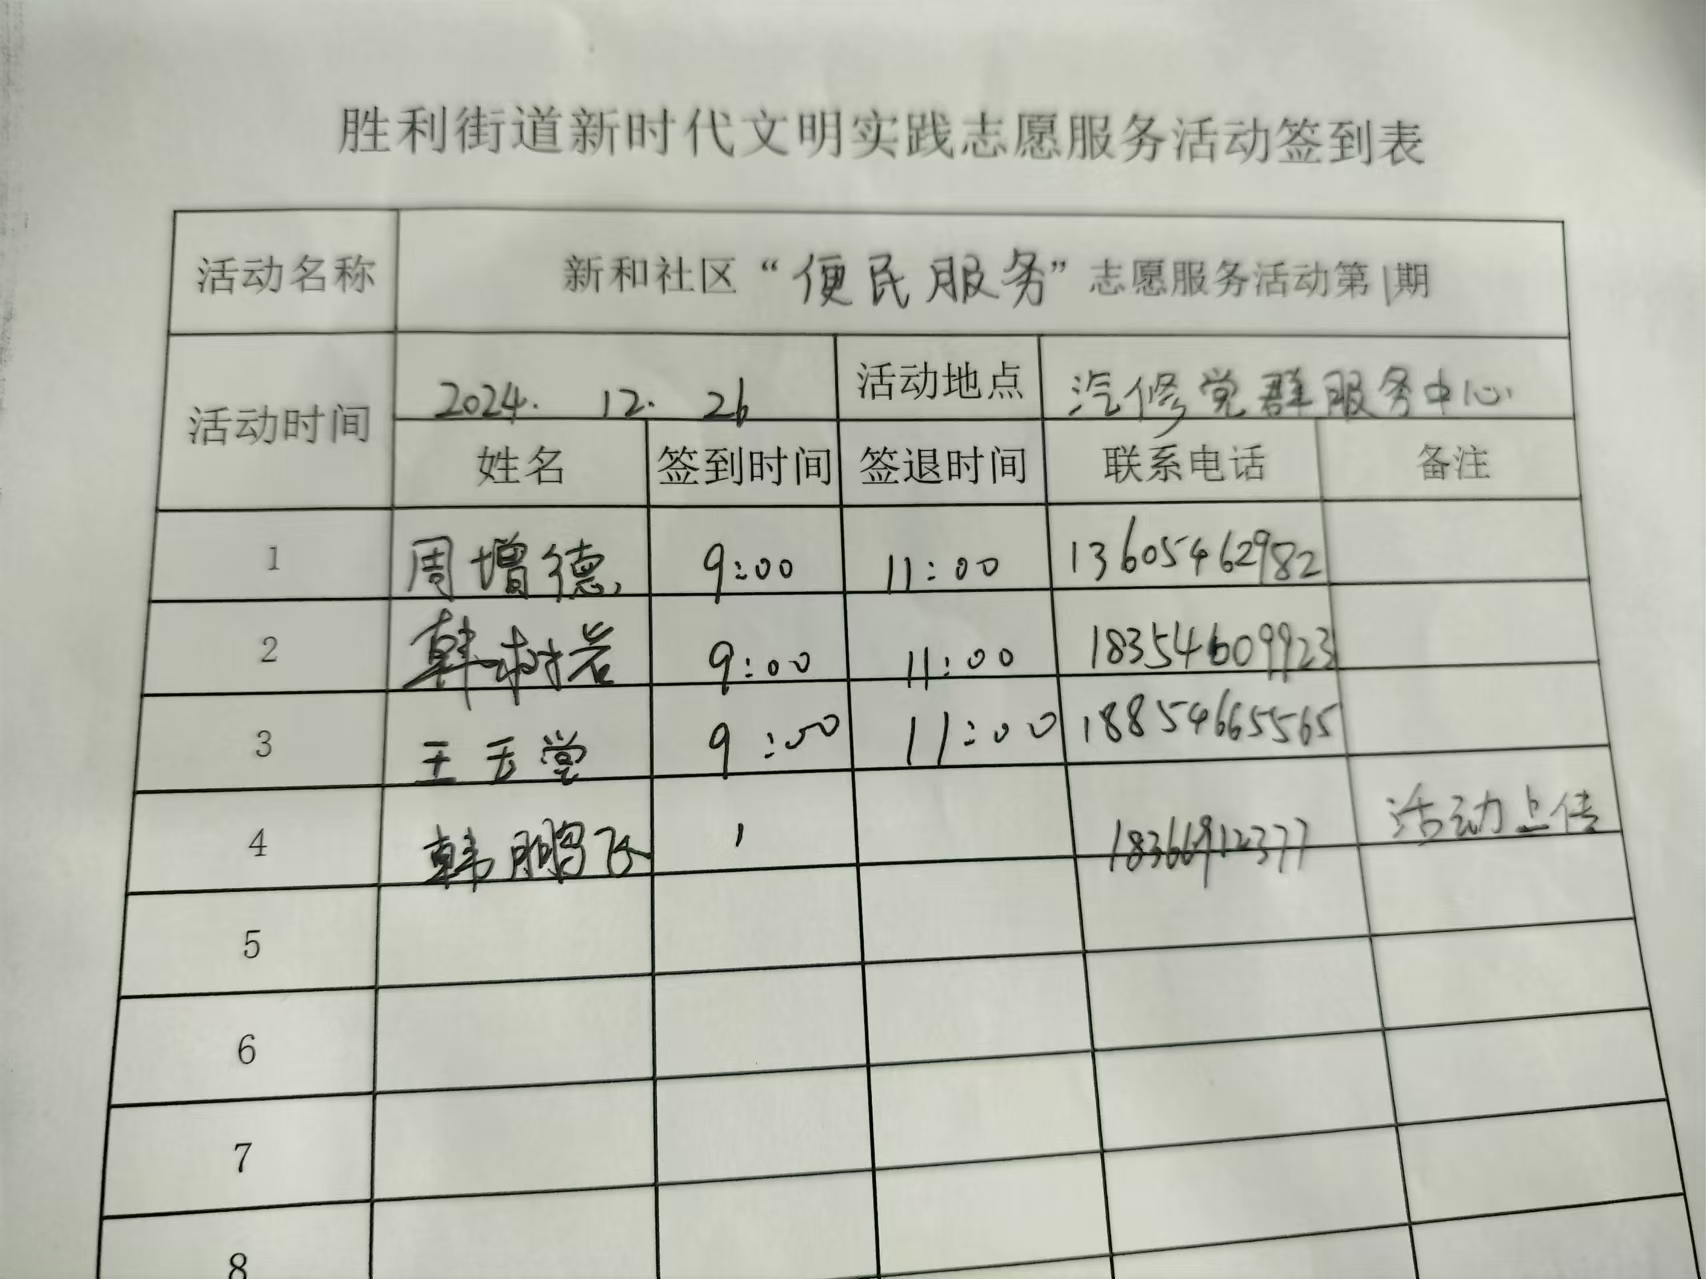 胜利街道新时代文明实践志愿服务活动签到表
活动名称 新和社区“便民服务”志愿服务活动第1期
活动时间 2024. 12. 26 活动地点 汽修党群服务中心
姓名 签到时间 签退时间 联系电话 备注
1 周增德 9:00 11:00 13605462982
2 韩树岩 9:00 11:00 18354609923
3 王玉堂 9:00 11:00 18854665565
4 韩鹏飞 18366912377 活动上传
5
6
7
8